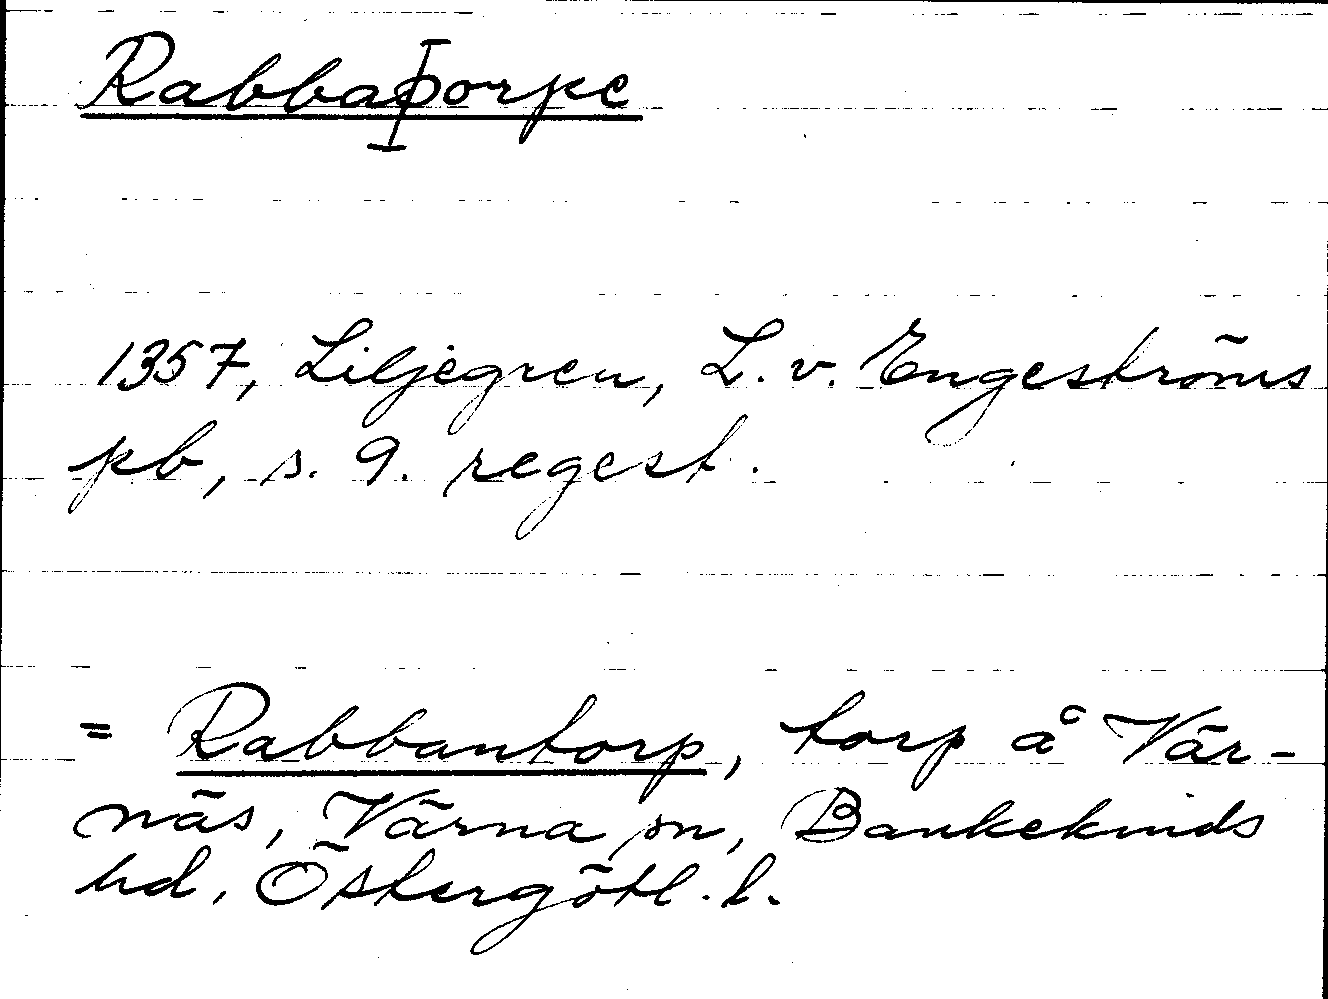 Rabbaþorpe
1357, Liljegren, L. v. Engeströms
pb, s. 9. regest.
= Rabbantorp, torp å Vär-
näs, Värna sn, Bankekinds
hd, Östergötl. l.